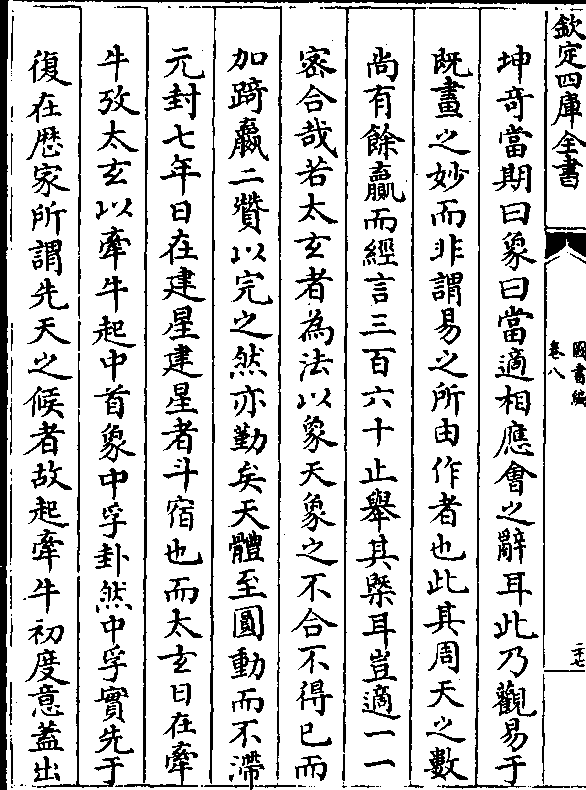 欽定四庫全書
圖書編
卷八
二十七
坤奇當期曰象曰當適相應會之辭耳此乃觀易于
既畫之妙而非謂易之所由作者也此其周天之數
尚有餘贏而經言三百六十止舉其槩耳豈適一一
宻合哉若太玄者為法以象天象之不合不得已而
加踦贏二贊以完之然亦勤矣天體至圓動而不滯
元封七年日在建星建星者斗宿也而太玄日在牽
牛攷太玄以牽牛起中首象中孚卦然中孚實先于
復在厯家所謂先天之候者故起牽牛初度意蓋出